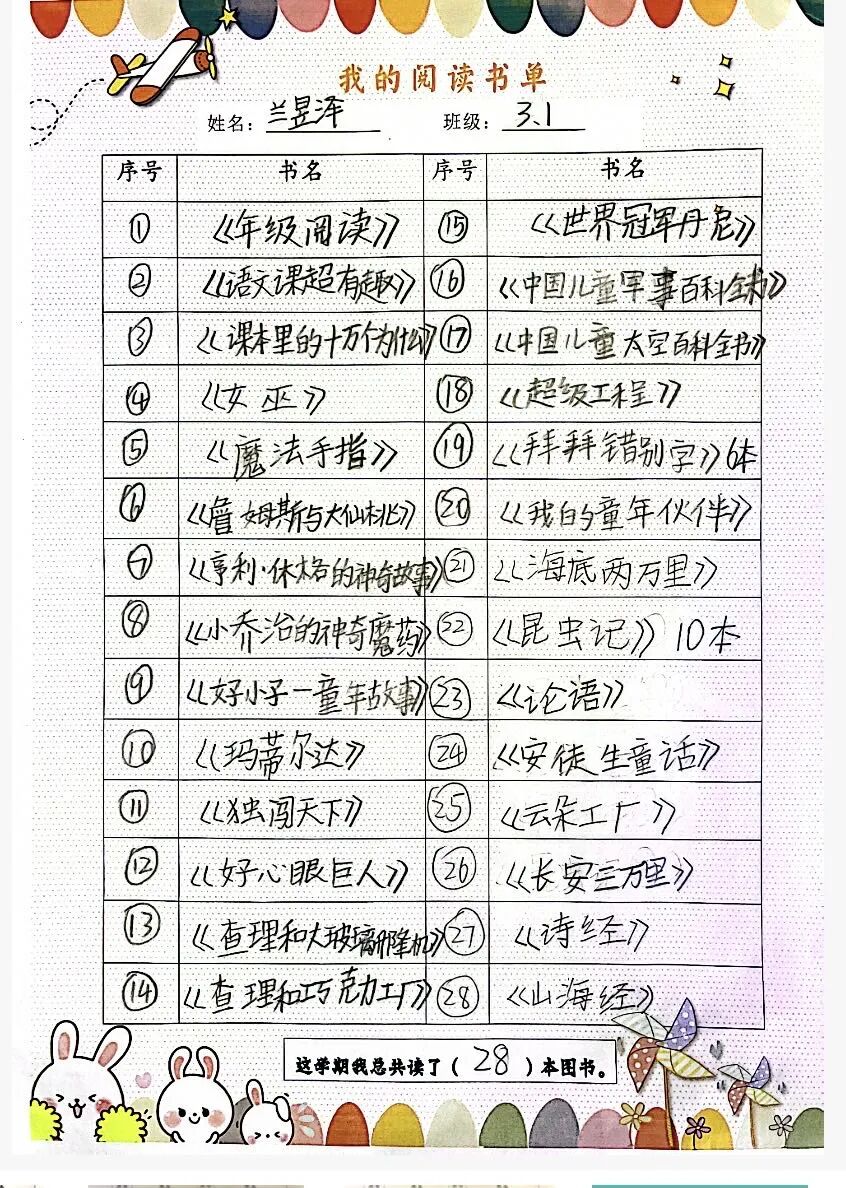 我的阅读书单
姓名：兰昱泽 班级：3.1
序号 书名 序号 书名
① 《年级阅读》 ⑮ 《世界冠军丹尼》
② 《语文课超有趣》 ⑯ 《中国儿童军事百科全书》
③ 《课本里的十万个为什么》 ⑰ 《中国儿童太空百科全书》
④ 《女巫》 ⑱ 《超级工程》
⑤ 《魔法手指》 ⑲ 《拜拜错别字》6本
⑥ 《詹姆斯与大仙桃》 ⑳ 《我的童年伙伴》
⑦ 《亨利·休格的神奇故事》 ㉑ 《海底两万里》
⑧ 《小乔治的神奇魔药》 ㉒ 《昆虫记》10本
⑨ 《好小子一童年故事》 ㉓ 《论语》
⑩ 《玛蒂尔达》 ㉔ 《安徒生童话》
⑪ 《独闯天下》 ㉕ 《云朵工厂》
⑫ 《好心眼巨人》 ㉖ 《长安三万里》
⑬ 《查理和大玻璃升降机》 ㉗ 《诗经》
⑭ 《查理和巧克力工厂》 ㉘ 《山海经》
这学期我总共读了（28）本图书。